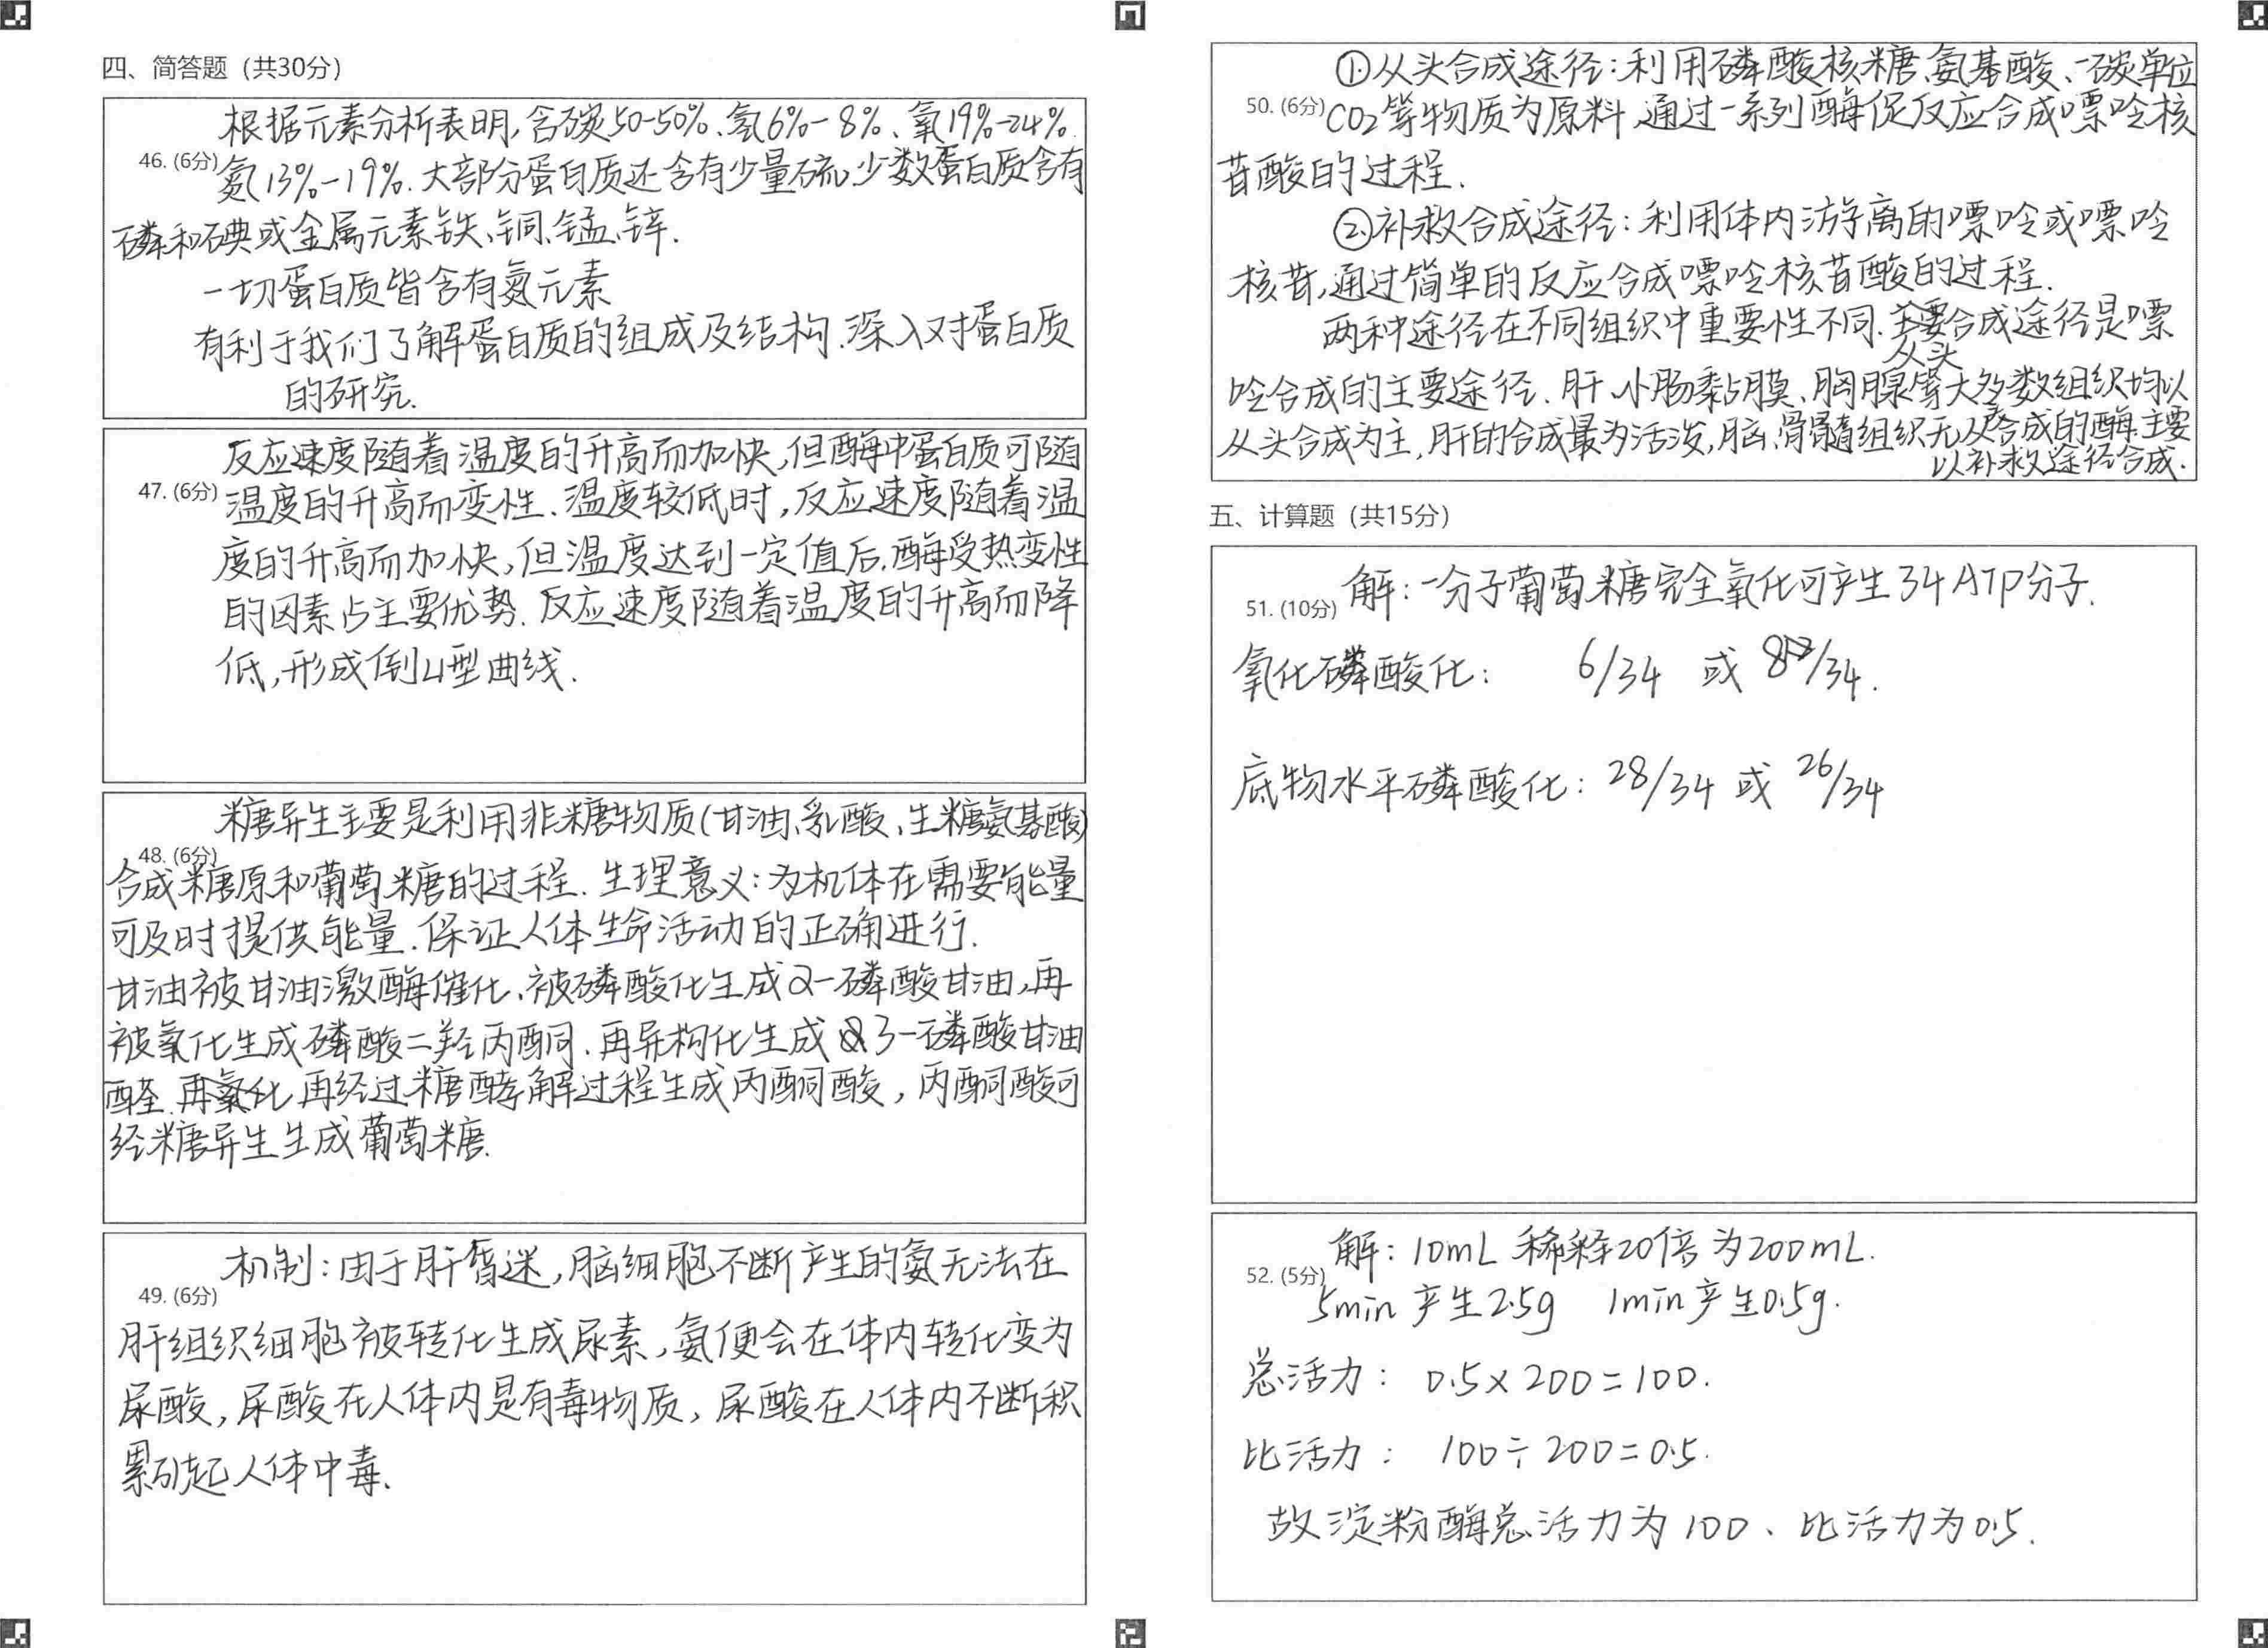 四、简答题（共30分）
根据元素分析表明,含碳50-50%、氢6%-8%、氧19%-24%.
46. (6分)
氮13%-19%.大部分蛋白质还含有少量硫,少数蛋白质含有
磷和碘或金属元素铁、铜、锰、锌.
一切蛋白质皆含有氮元素
有利于我们了解蛋白质的组成及结构.深入对蛋白质
的研究.
反应速度随着温度的升高而加快,但酶中蛋白质可随
47. (6分)
温度的升高而变性.温度较低时,反应速度随着温
度的升高而加快,但温度达到一定值后.酶受热变性
的因素占主要优势.反应速度随着温度的升高而降
低,形成倒U型曲线.
糖异生主要是利用非糖物质(甘油、乳酸、生糖氨基酸)
48. (6分)
合成糖原和葡萄糖的过程.生理意义:为机体在需要能量
可及时提供能量.保证人体生命活动的正确进行.
甘油被甘油激酶催化、被磷酸化生成α-磷酸甘油,再
被氧化生成磷酸二羟丙酮.再异构化生成3-磷酸甘油
醛.再氧化再经过糖酵解过程生成丙酮酸,丙酮酸可
经糖异生生成葡萄糖.
机制:由于肝昏迷,脑细胞不断产生的氨无法在
49. (6分)
肝组织细胞被转化生成尿素,氨便会在体内转化变为
尿酸,尿酸在人体内是有毒物质,尿酸在人体内不断积
累引起人体中毒.
①从头合成途径:利用磷酸核糖、氨基酸、一碳单位
50. (6分)
CO2等物质为原料,通过一系列酶促反应合成嘌呤核
苷酸的过程.
②补救合成途径:利用体内游离的嘌呤或嘌呤
核苷,通过简单的反应合成嘌呤核苷酸的过程.
两种途径在不同组织中重要性不同.主要合成途径是嘌
从头
呤合成的主要途径.肝、小肠黏膜、胸腺等大多数组织均以
从头合成为主,肝的合成最为活泼,脑、骨髓组织无从合成的酶.主要
以补救途径合成.
五、计算题（共15分）
解:一分子葡萄糖完全氧化可产生34ATP分子.
51. (10分)
氧化磷酸化: 6/34 或 8/34.
底物水平磷酸化: 28/34 或 26/34
解: 10mL 稀释20倍为200mL.
52. (5分)
5min产生2.5g 1min产生0.5g.
总活力: 0.5×200=100.
比活力: 100÷200=0.5.
故淀粉酶总活力为100、比活力为0.5.